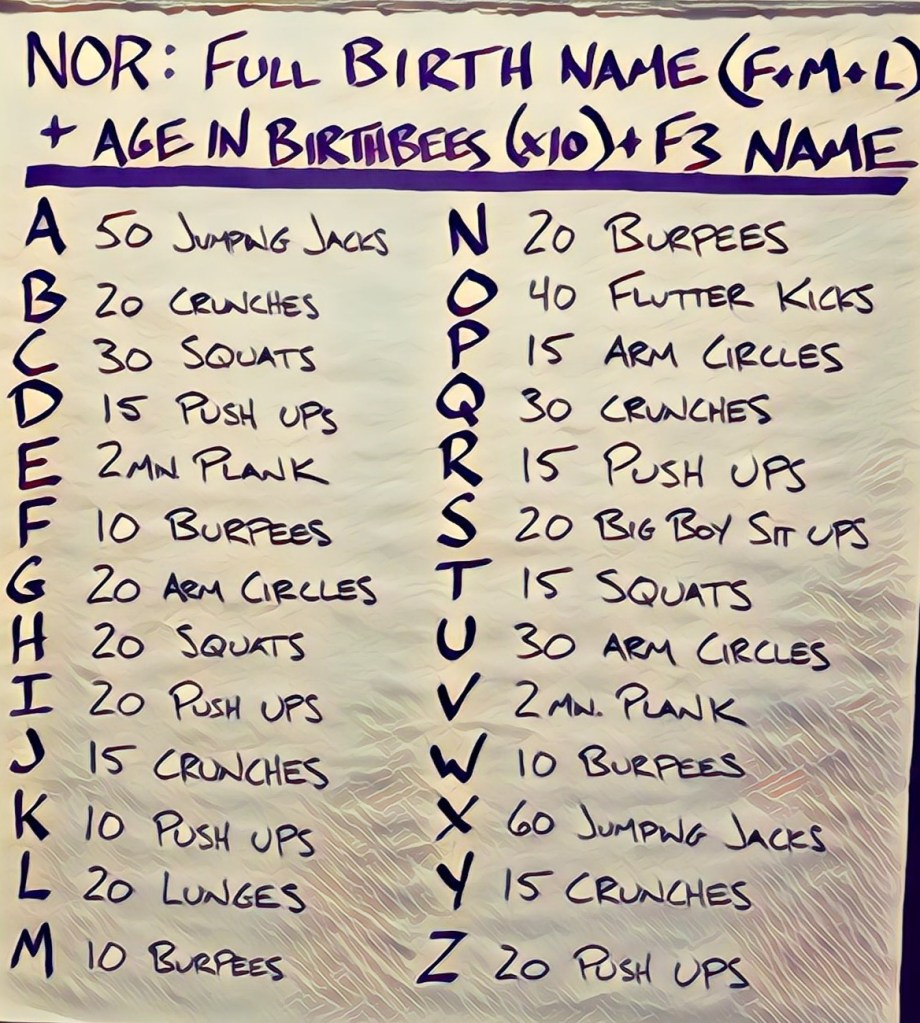 NOR: FULL BIRTH NAME (F+M+L)
+ AGE IN BIRTHBEES (x10) + F3 NAME
A 50 JUMPING JACKS
B 20 CRUNCHES
C 30 SQUATS
D 15 PUSH UPS
E 2MN PLANK
F 10 BURPEES
G 20 ARM CIRCLES
H 20 SQUATS
I 20 PUSH UPS
J 15 CRUNCHES
K 10 PUSH UPS
L 20 LUNGES
M 10 BURPEES
N 20 BURPEES
O 40 FLUTTER KICKS
P 15 ARM CIRCLES
Q 30 CRUNCHES
R 15 PUSH UPS
S 20 BIG BOY SIT UPS
T 15 SQUATS
U 30 ARM CIRCLES
V 2 MN. PLANK
W 10 BURPEES
X 60 JUMPING JACKS
Y 15 CRUNCHES
Z 20 PUSH UPS